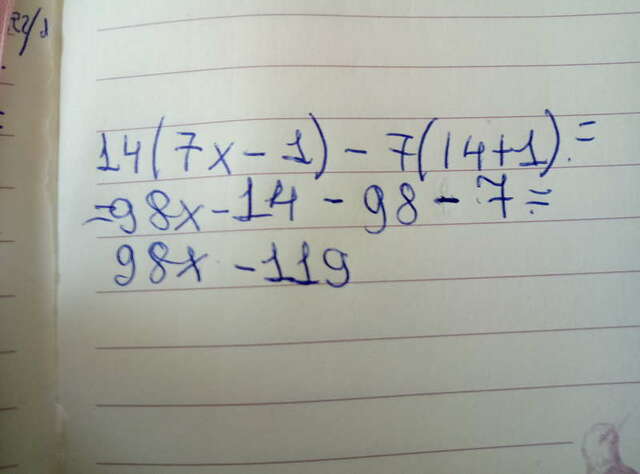 14(7x-1)-7(14+1)=
=98x-14-98-7=
98x-119